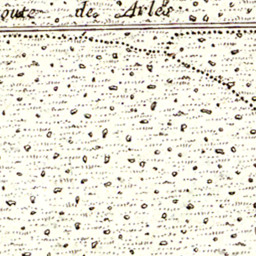 oute de Arles